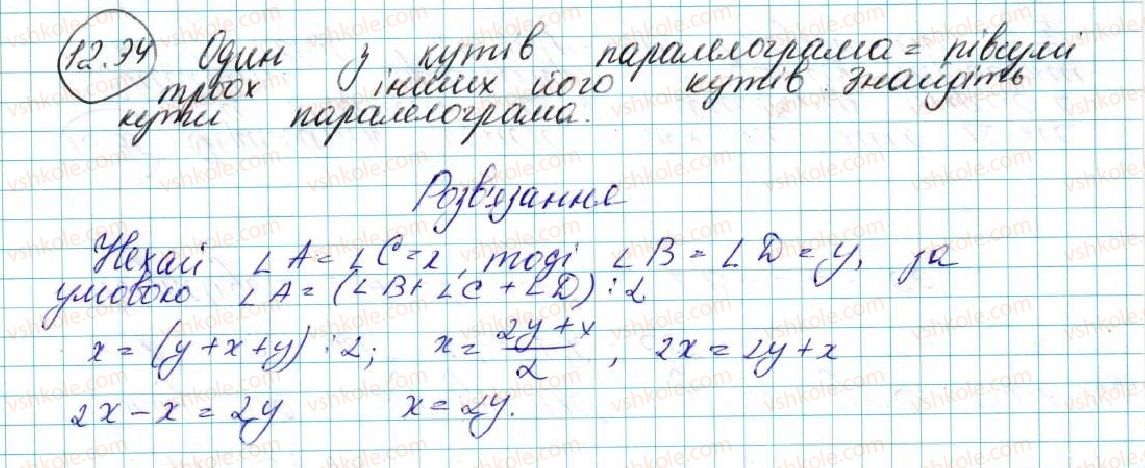 12.34 Один з кутів паралелограма = півсумі
трьох інших його кутів. Знайдіть
кути паралелограма.
Розв'язання
Нехай ∠A = ∠C = x, тоді ∠B = ∠D = y, за
умовою ∠A = (∠B + ∠C + ∠D) : 2
x = (y + x + y) : 2; x = \frac{2y + x}{2}, 2x = 2y + x
2x - x = 2y x = 2y.